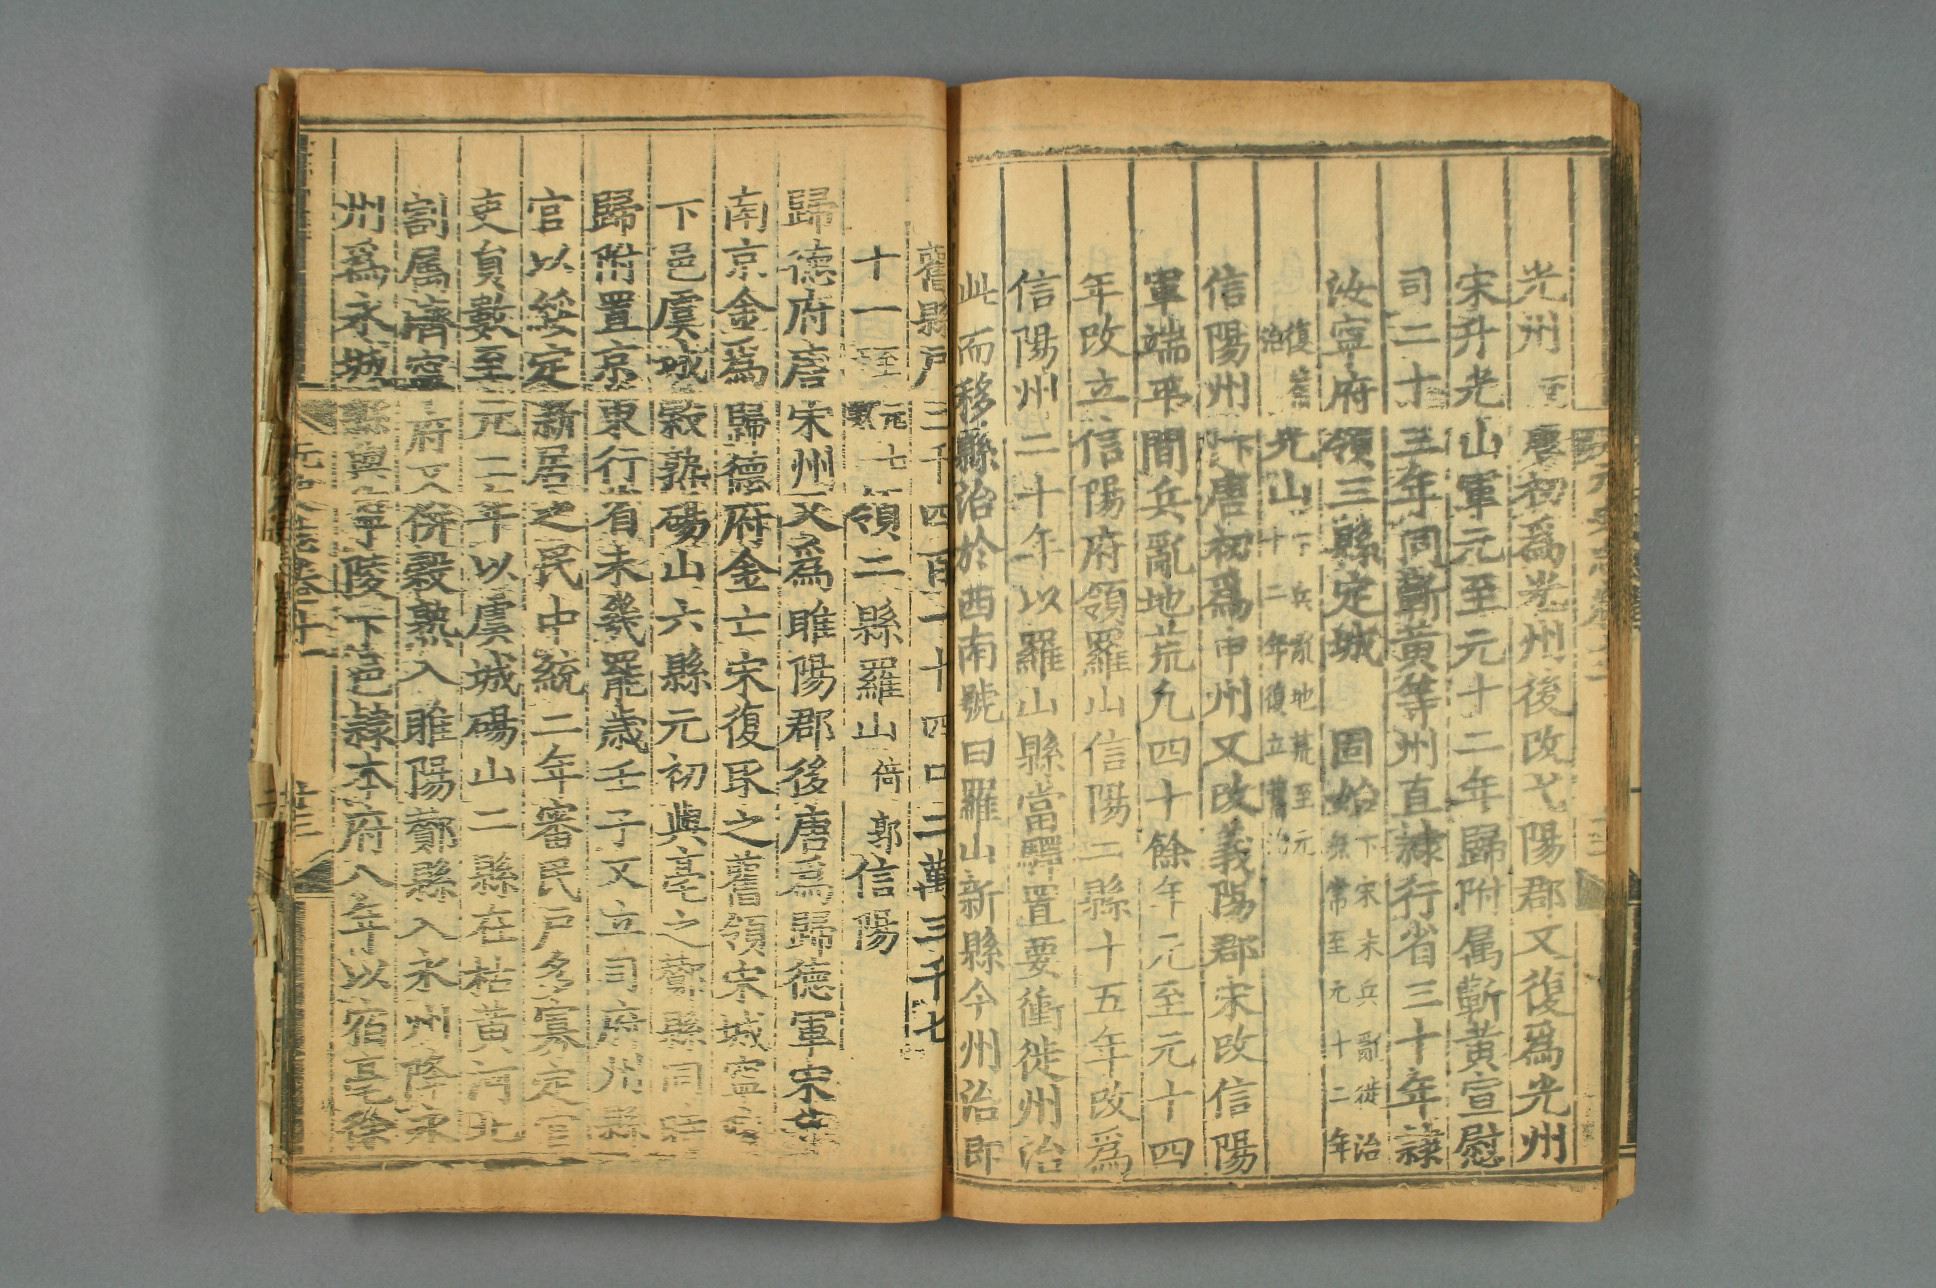 光州下唐初爲光州後改弋陽郡又復爲光州
宋升光山軍元至元十二年歸附属蘄黄宣慰
司二十三年同蘄黄等州直隷行省三十年隷
汝寧府領三縣定城 固始下宋末兵亂徙治無常至元十二年
復舊治光山下兵亂地荒至元十二年復立舊治
信陽州下唐初爲申州又改義陽郡宋改信陽
軍端平間兵亂地荒凡四十餘年元至元十四
年改立信陽府領羅山信陽二縣十五年改爲
信陽州二十年以羅山縣當驛置要衝徙州治
此而移縣治於西南號曰羅山新縣今州治即
舊縣戸三千四百一十四口二萬三千七
十一至元七領二縣羅山倚郭信陽
歸德府唐宋州又爲睢陽郡後唐爲歸德軍宋
南京金爲歸德府金亡宋復取之舊領宋城寧陵
下邑虞城穀熟碭山六縣元初與亳之酇縣同
歸附置京東行省未幾罷歳壬子又立司府州縣
官以綏定新居之民中統二年審民戸多寡定官
吏員數至元二年以虞城碭山二縣在枯黄河北
割属濟寧府又併穀熟入睢陽酇縣入永州降永
州爲永城縣與寧陵下邑隷本府八年以宿亳徐
元史志卷十一